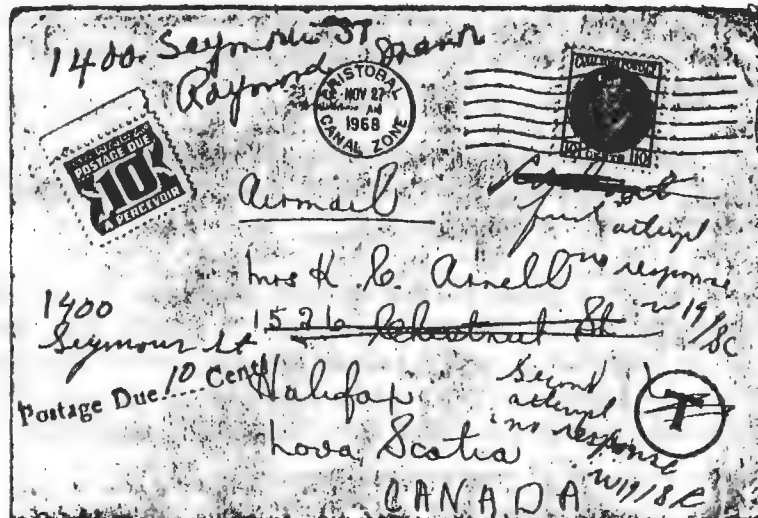 1400 Seymour ST
Raymond
CRISTOBAL
NOV 27
AM
1968
CANAL ZONE
CANAL ZONE POSTAGE
10 10
POSTAGE DUE
10
A PERCEVOIR
Airmail
first attempt
no response
w19/8C
Mrs K. C. Arnell
1526 Chestnut St
1400
Seymour St
Postage Due 10 Cents
Halifax
Nova Scotia
CANADA
Second
attempt
no response
w19/8C
T